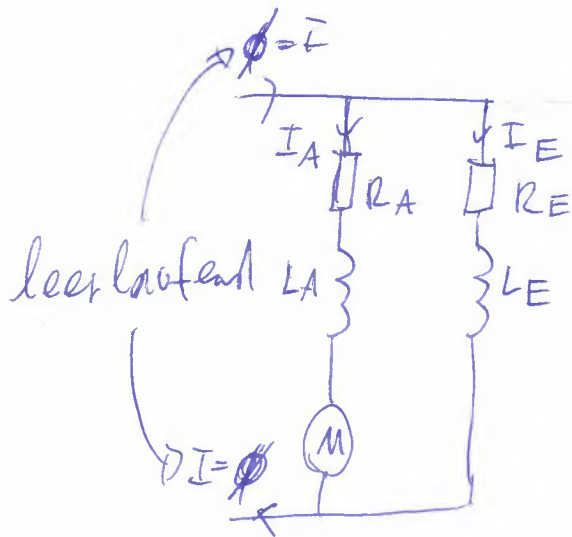 0 = I
I_A I_E
R_A R_E
leerlaufend L_A L_E
M
I = 0